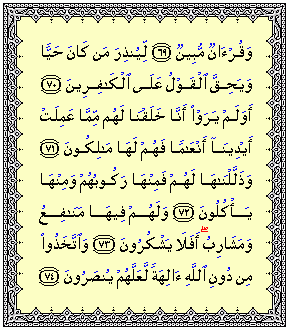 وَقُرْءَانٌ مُّبِينٌ ﴿٦٩﴾ لِّيُنذِرَ مَن كَانَ حَيًّا
وَيَحِقَّ ٱلْقَوْلُ عَلَى ٱلْكَـٰفِرِينَ ﴿٧٠﴾
أَوَلَمْ يَرَوْا۟ أَنَّا خَلَقْنَا لَهُم مِّمَّا عَمِلَتْ
أَيْدِينَآ أَنْعَـٰمًا فَهُمْ لَهَا مَـٰلِكُونَ ﴿٧١﴾
وَذَلَّلْنَـٰهَا لَهُمْ فَمِنْهَا رَكُوبُهُمْ وَمِنْهَا
يَأْكُلُونَ ﴿٧٢﴾ وَلَهُمْ فِيهَا مَنَـٰفِعُ
وَمَشَارِبُ ۖ أَفَلَا يَشْكُرُونَ ﴿٧٣﴾ وَٱتَّخَذُوا۟
مِن دُونِ ٱللَّهِ ءَالِهَةً لَّعَلَّهُمْ يُنصَرُونَ ﴿٧٤﴾